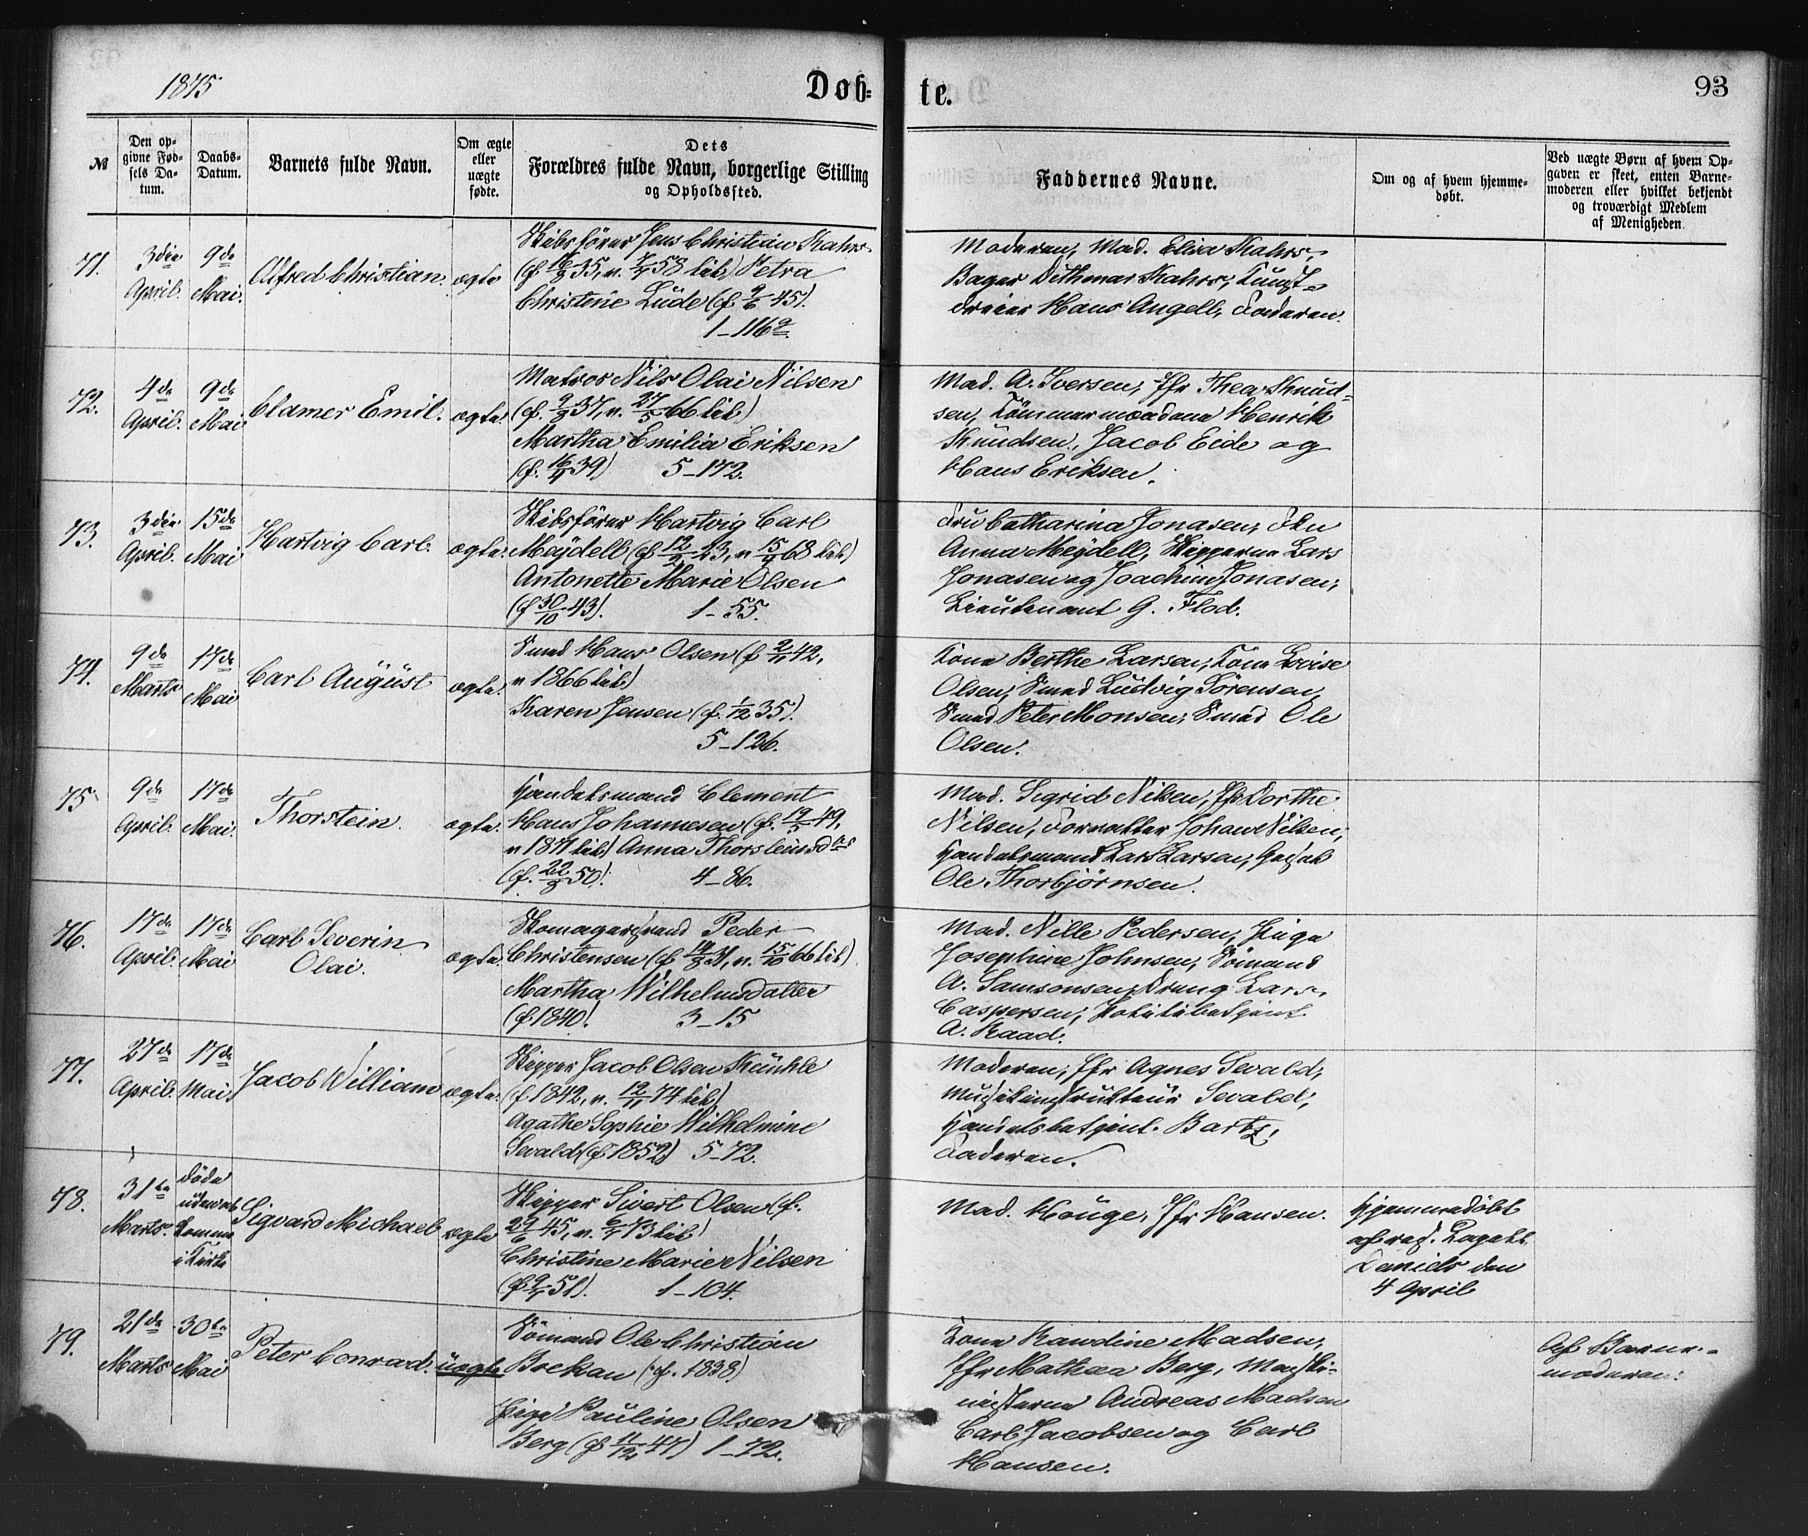 1875
Døb-
te.
93
№
Den op-
givne Fød-
sels Da-
tum.
Daabs-
Datum.
Barnets fulde Navn.
Om ægte
eller
uægte
fødte.
Dets
Forældres fulde Navn, borgerlige Stilling
og Opholdssted.
Faddernes Navne.
Om og af hvem hjemme-
døbt.
Ved uægte Børn af hvem Op-
gaven er skeet, enten Barne-
moderen eller hvilket bekjendt
og troværdigt Medlem
af Menigheden.
71.
3die
April.
9de
Mai.
Alfred Christian.
ægte
Skibsförer Jens Christian Kahrs
(f. 35, v. 58 lib) Petra
Christine Lüde (f. 9/6 45).
1-116a.
Moderen, Mad. Elisa Kahrs,
Bager Dithmar Kahrs, Kunst-
dreier Hans Angell, Faderen.
72.
4de
April.
9de
Mai
Clamer Emil.
ægte.
Matros Nils Olai Nilsen
(f. 37, v. 27/5 66 lib)
Martha Emilia Eriksen
(f. 39) 5-172.
Mad. A. Iversen, Jfr Thea Knud-
sen, Tömmermændene Henrik
Knudsen, Jacob Eide og
Hans Eriksen.
73.
3die
April.
15de
Mai
Hartvig Carl.
ægte.
Skibsförer Hartvig Carl
Meÿdell (f. 43, v. 68 lib)
Antonette Marie Olsen
(f 30/10 43). 1-55.
Fru Catharina Jonasen, Frk
Anna Meÿdell, Skipperne Lars
Jonasen og Joachim Jonasen,
Lieutenant G. Flod.
74.
9de
Marts
17de
Mai
Carl Aŭgŭst
ægte.
Smed Hans Olsen (f 42,
v 1866 lib)
Karen Jensen (f. 1/12 35).
5-126.
Kone Berthe Larsen, Kone Lovise
Olsen, Smed Ludvig Sörensen,
Smed Peter Monsen, Smed Ole
Olsen.
75
9de
April.
17de
Mai.
Thorstein.
ægte.
Handelsmand Clement
Hans Johannesen (f. 19/5 49,
v 1871 lib) Anna Thorsteinsd
(f. 50). 4-86.
Mad. Sigrid Nilsen, Jfr Dorthe
Nilsen, Forvalter Johan Nilsen,
Handelsmand Lars Larsen,
Ole Thorbjörnsen.
76.
17de
April.
17de
Mai
Carl Severin
Olai.
ægte.
Peder
Christensen (f v. 15/10 66 lib)
Martha Wilhelmsdatter
(f 1840). 3-15
Mad. Nille Pedersen, Pige
Josephine Johnsen, Sömand
A. Samsonsen, Dreng Lars
Caspersen, Politibetjent
A. Raad.
77.
27de
April.
17de
Mai
Jacob William
ægte.
Skipper Jacob Olsen Künhle
(f. 1842, v. 12/11 74 lib)
Agathe Sophie Wilhelmine
Sevald (f 1852) 5-72.
Moderen, Jfr Agnes Sevald,
Musikinstrukteur Sevald,
Handelsbetjent Bartz,
Faderen.
78.
31te
Marts.
i Kirke
Sigvard Michael
ægte
Skipper Sivert Olsen (f.
29/6 45, v. 73 lib)
Christine Marie Nilsen
(f 51). 1-104.
Mad. Houge, Jfr Hansen.
Hjemmedöbt
af res.
Daniels den
4 April
79.
21de
Marts
30te
Mai
Peter Conrad.
uægte
Sömand Ole Christian
Brekan (f. 1838)
Pige Pauline Olsen
Berg (f 11/12 47) 1-72.
Kone Randine Madsen,
Jfr Mathea Berg, Maski-
nisterne Andreas Madsen
Carl Jacobsen og Carl
Hansen.
Af Barne-
moderen.